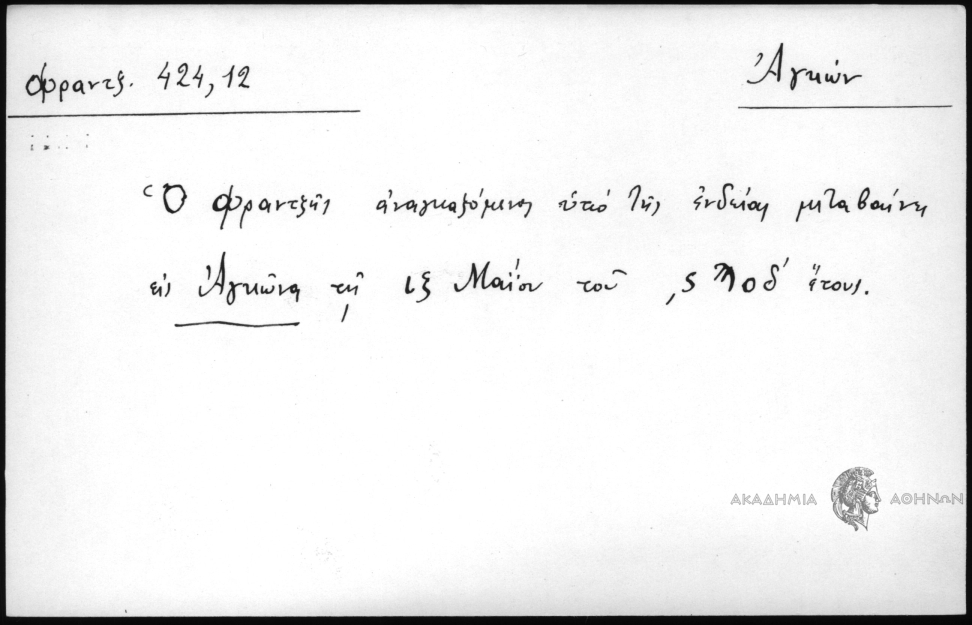 Φραντζ. 424,12
Ἀγκών
Ὁ Φραντζῆς ἀναγκαζόμενος ὑπό τῆς ἐνδείας μεταβαίνει
εἰς Ἀγκῶνα τῇ ιξ Μαΐου τοῦ ͵ςϠοδ΄ ἔτους.
ΑΚΑΔΗΜΙΑ ΑΘΗΝΩΝ